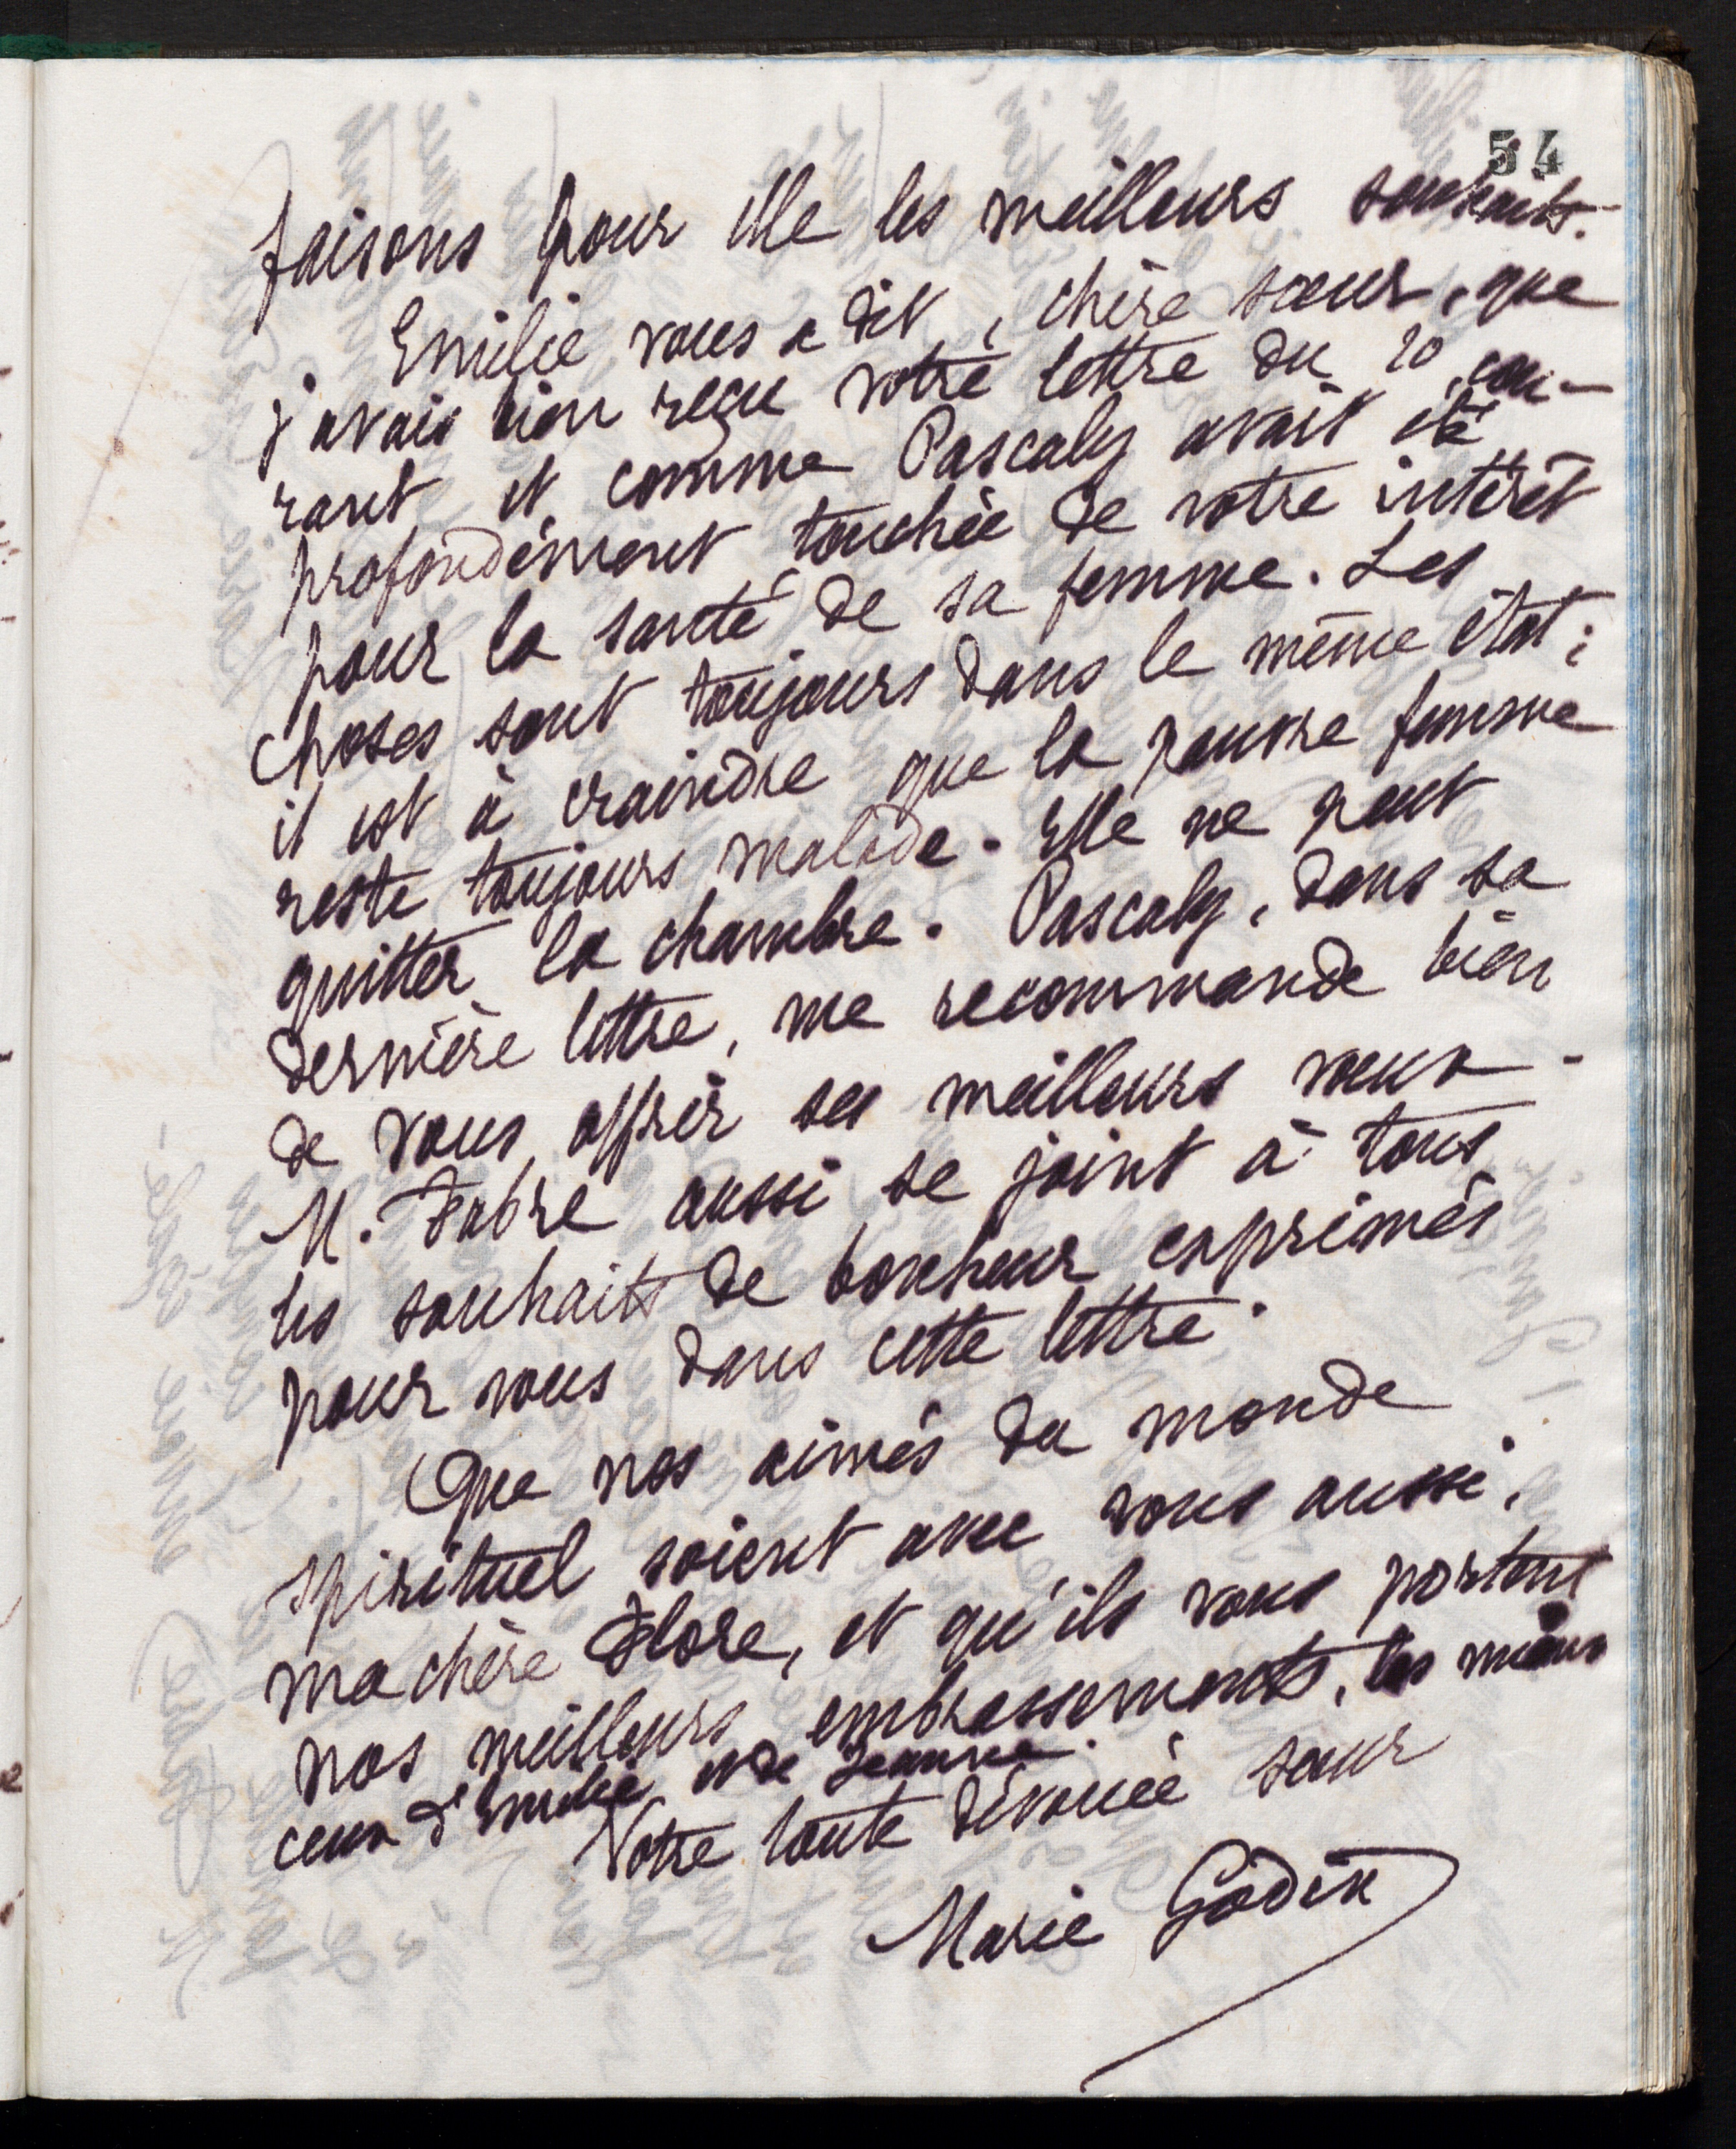 54
faisons pour elle les meilleurs souhaits.
Emilie vous a dit, chère soeur, que
j'avais bien reçu votre lettre du 20 cou-
rant et comme Pascaly avait été
profondément touchée de votre intérêt
pour la santé de sa femme. Les
choses sont toujours dans le même état ;
il est à craindre que la pauvre femme
reste toujours malade. Elle ne peut
quitter la chambre. Pascaly, dans sa
dernière lettre, me recommande bien
de vous offrir ses meilleurs voeux -
M. Fabre aussi se joint à tous
les souhaits de bonheur exprimés
pour vous dans cette lettre.
Que nos aimés du monde
spirituel soient avec vous aussi,
ma chère Flore, et qu'ils vous portent
nos meilleurs embrassements, les miens
ceux d'Emilie et de Jeanne.
Votre toute dévouée soeur
Marie Godin